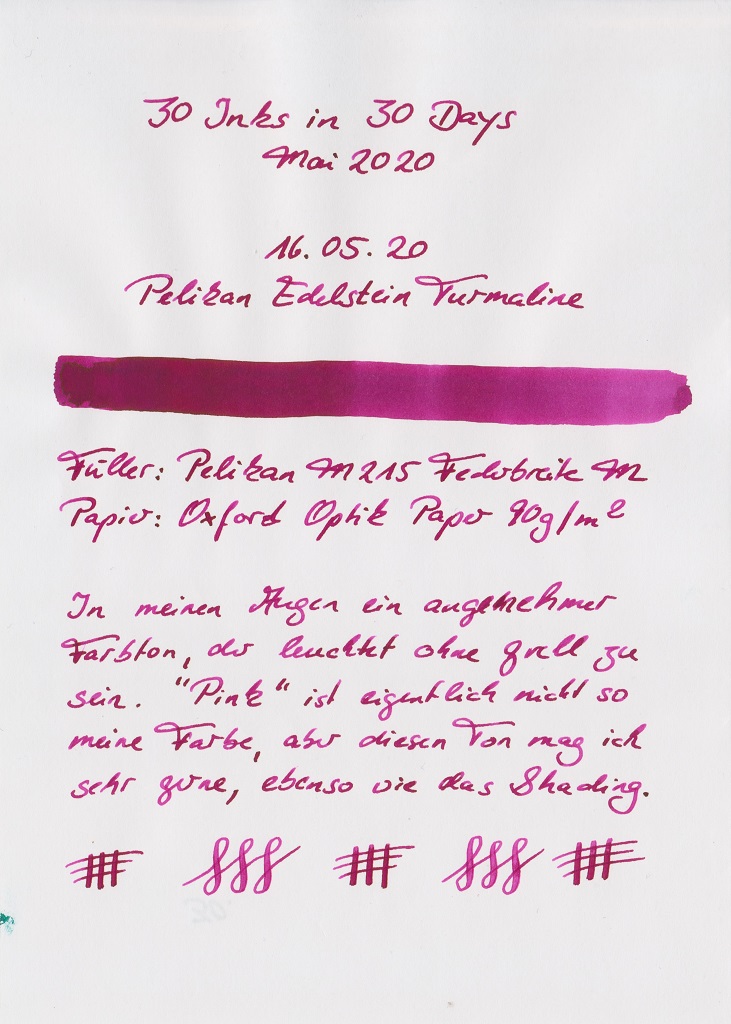 30 Inks in 30 Days
Mai 2020
16.05.20
Pelikan Edelstein Turmaline
Füller: Pelikan M215 Federbreite M
Papier: Oxford Optik Paper 90g/m²
In meinen Augen ein angenehmer
Farbton, der leuchtet ohne grell zu
sein. "Pink" ist eigentlich nicht so
meine Farbe, aber diesen Ton mag ich
sehr gerne, ebenso wie das Shading.